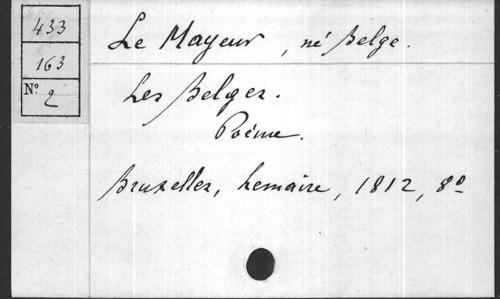 433
163
N.º 2
Le Mayeur, né Belge.
Les Belges.
Poème.
Bruxelles, Lemaire, 1812, 8º